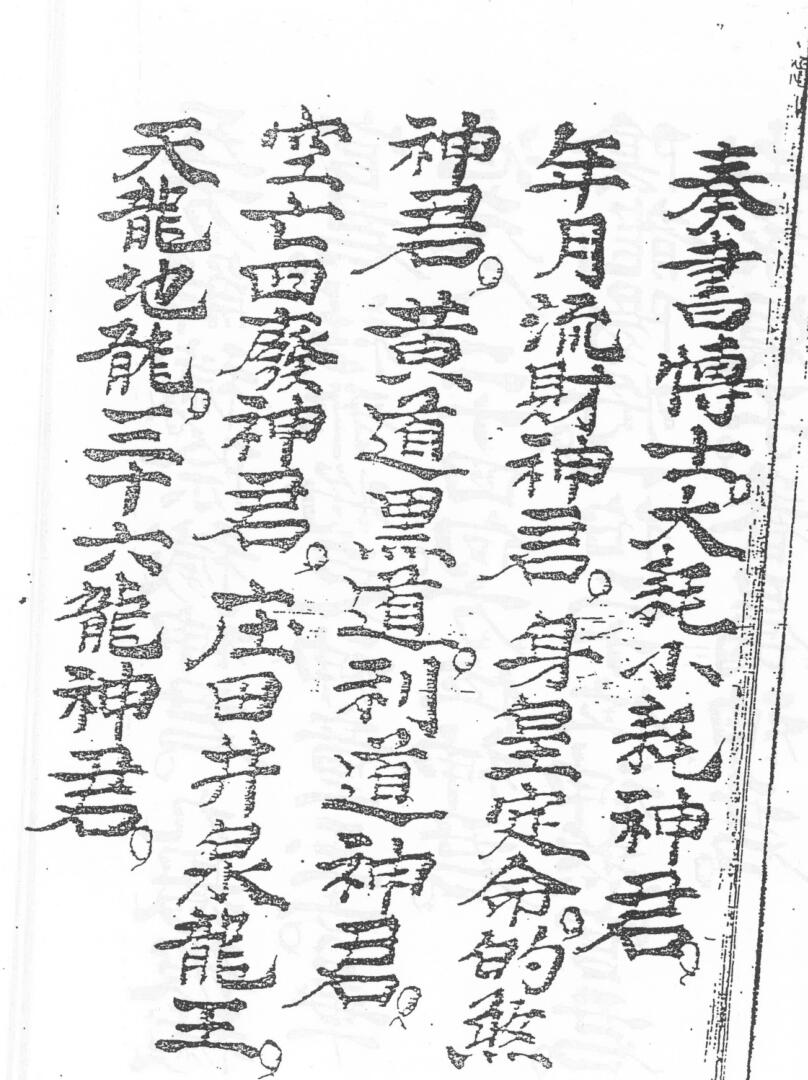 奏書博士。大耗小耗神君。
年月流財神君。身皇定命。的煞
神君。黃道黑道。刑道神君。
空亡四廢神君。庄田井泉龍王。
天龍地龍。三十六龍神君。